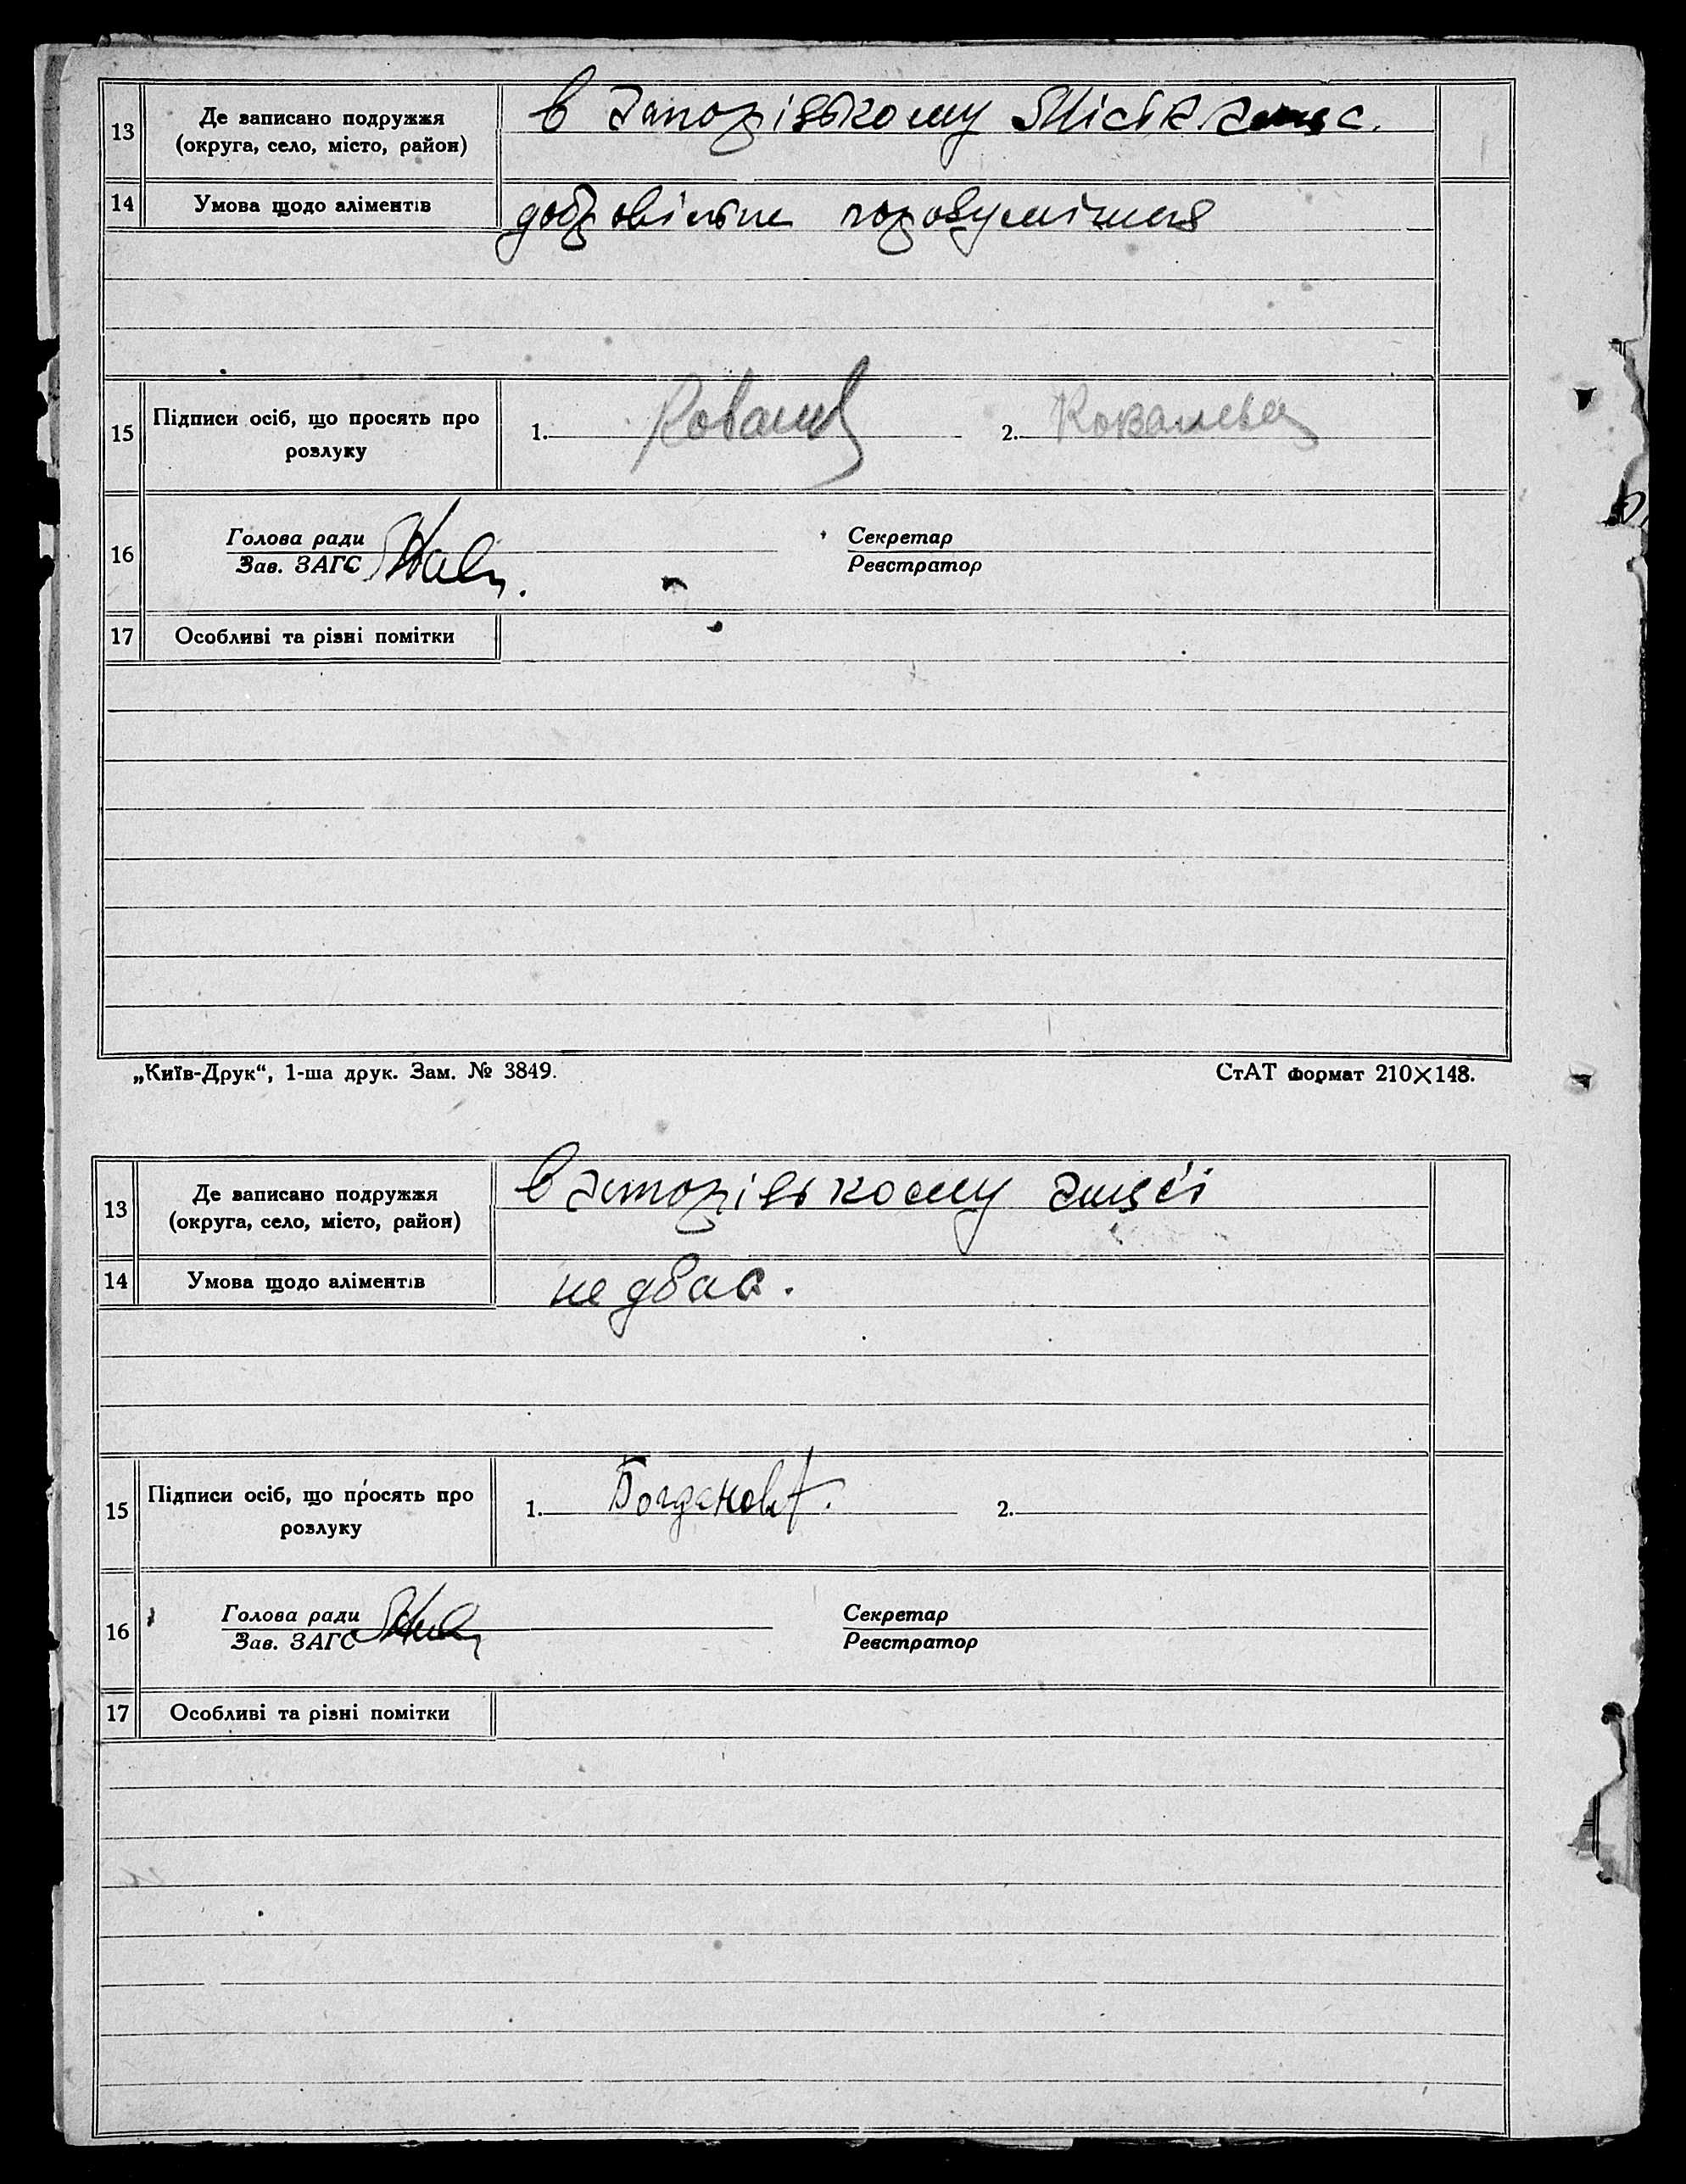 13 Де записано подружжя
(округа, село, місто, район)
в запорізькому
14 Умова щодо аліментів
добровільне порозуміння
15 Підписи осіб, що просять про
розлуку
1. 2. Ковалева
16 Голова ради
Зав. ЗАГС
Секретар
Реєстратор
17 Особливі та різні помітки
„Київ-Друк“, 1-ша друк. Зам. № 3849.
СтАТ формат 210×148.
13 Де записано подружжя
(округа, село, місто, район)
в запорізькому загсі
14 Умова щодо аліментів
не дбає.
15 Підписи осіб, що просять про
розлуку
1. Богданов 2.
16 Голова ради
Зав. ЗАГС
Секретар
Реєстратор
17 Особливі та різні помітки